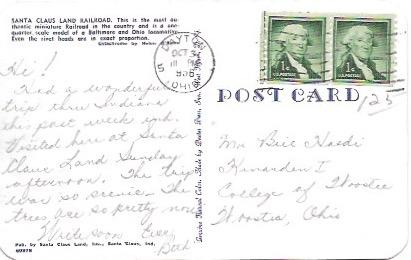 SANTA CLAUS LAND RAILROAD. This is the most au-
thentic miniature Railroad in the country and is a one-
quarter scale model of a Baltimore and Ohio locomotive.
Even the rivet heads are in exact proportion.
Hi!
Had a wonderful
trip thru Indiana
this past week end.
Visited here at Santa
Claus Land Sunday
afternoon. The trip
was so scenic. The
trees are so pretty now
Write soon Ever,
Pub. by Santa Claus Land, Inc., Santa Claus, Ind.
DAYTON
OCT 3
5
OHIO
1¢
U.S. POSTAGE
1¢
U.S. POSTAGE
POST CARD
125
College of Wooster
Wooster, Ohio